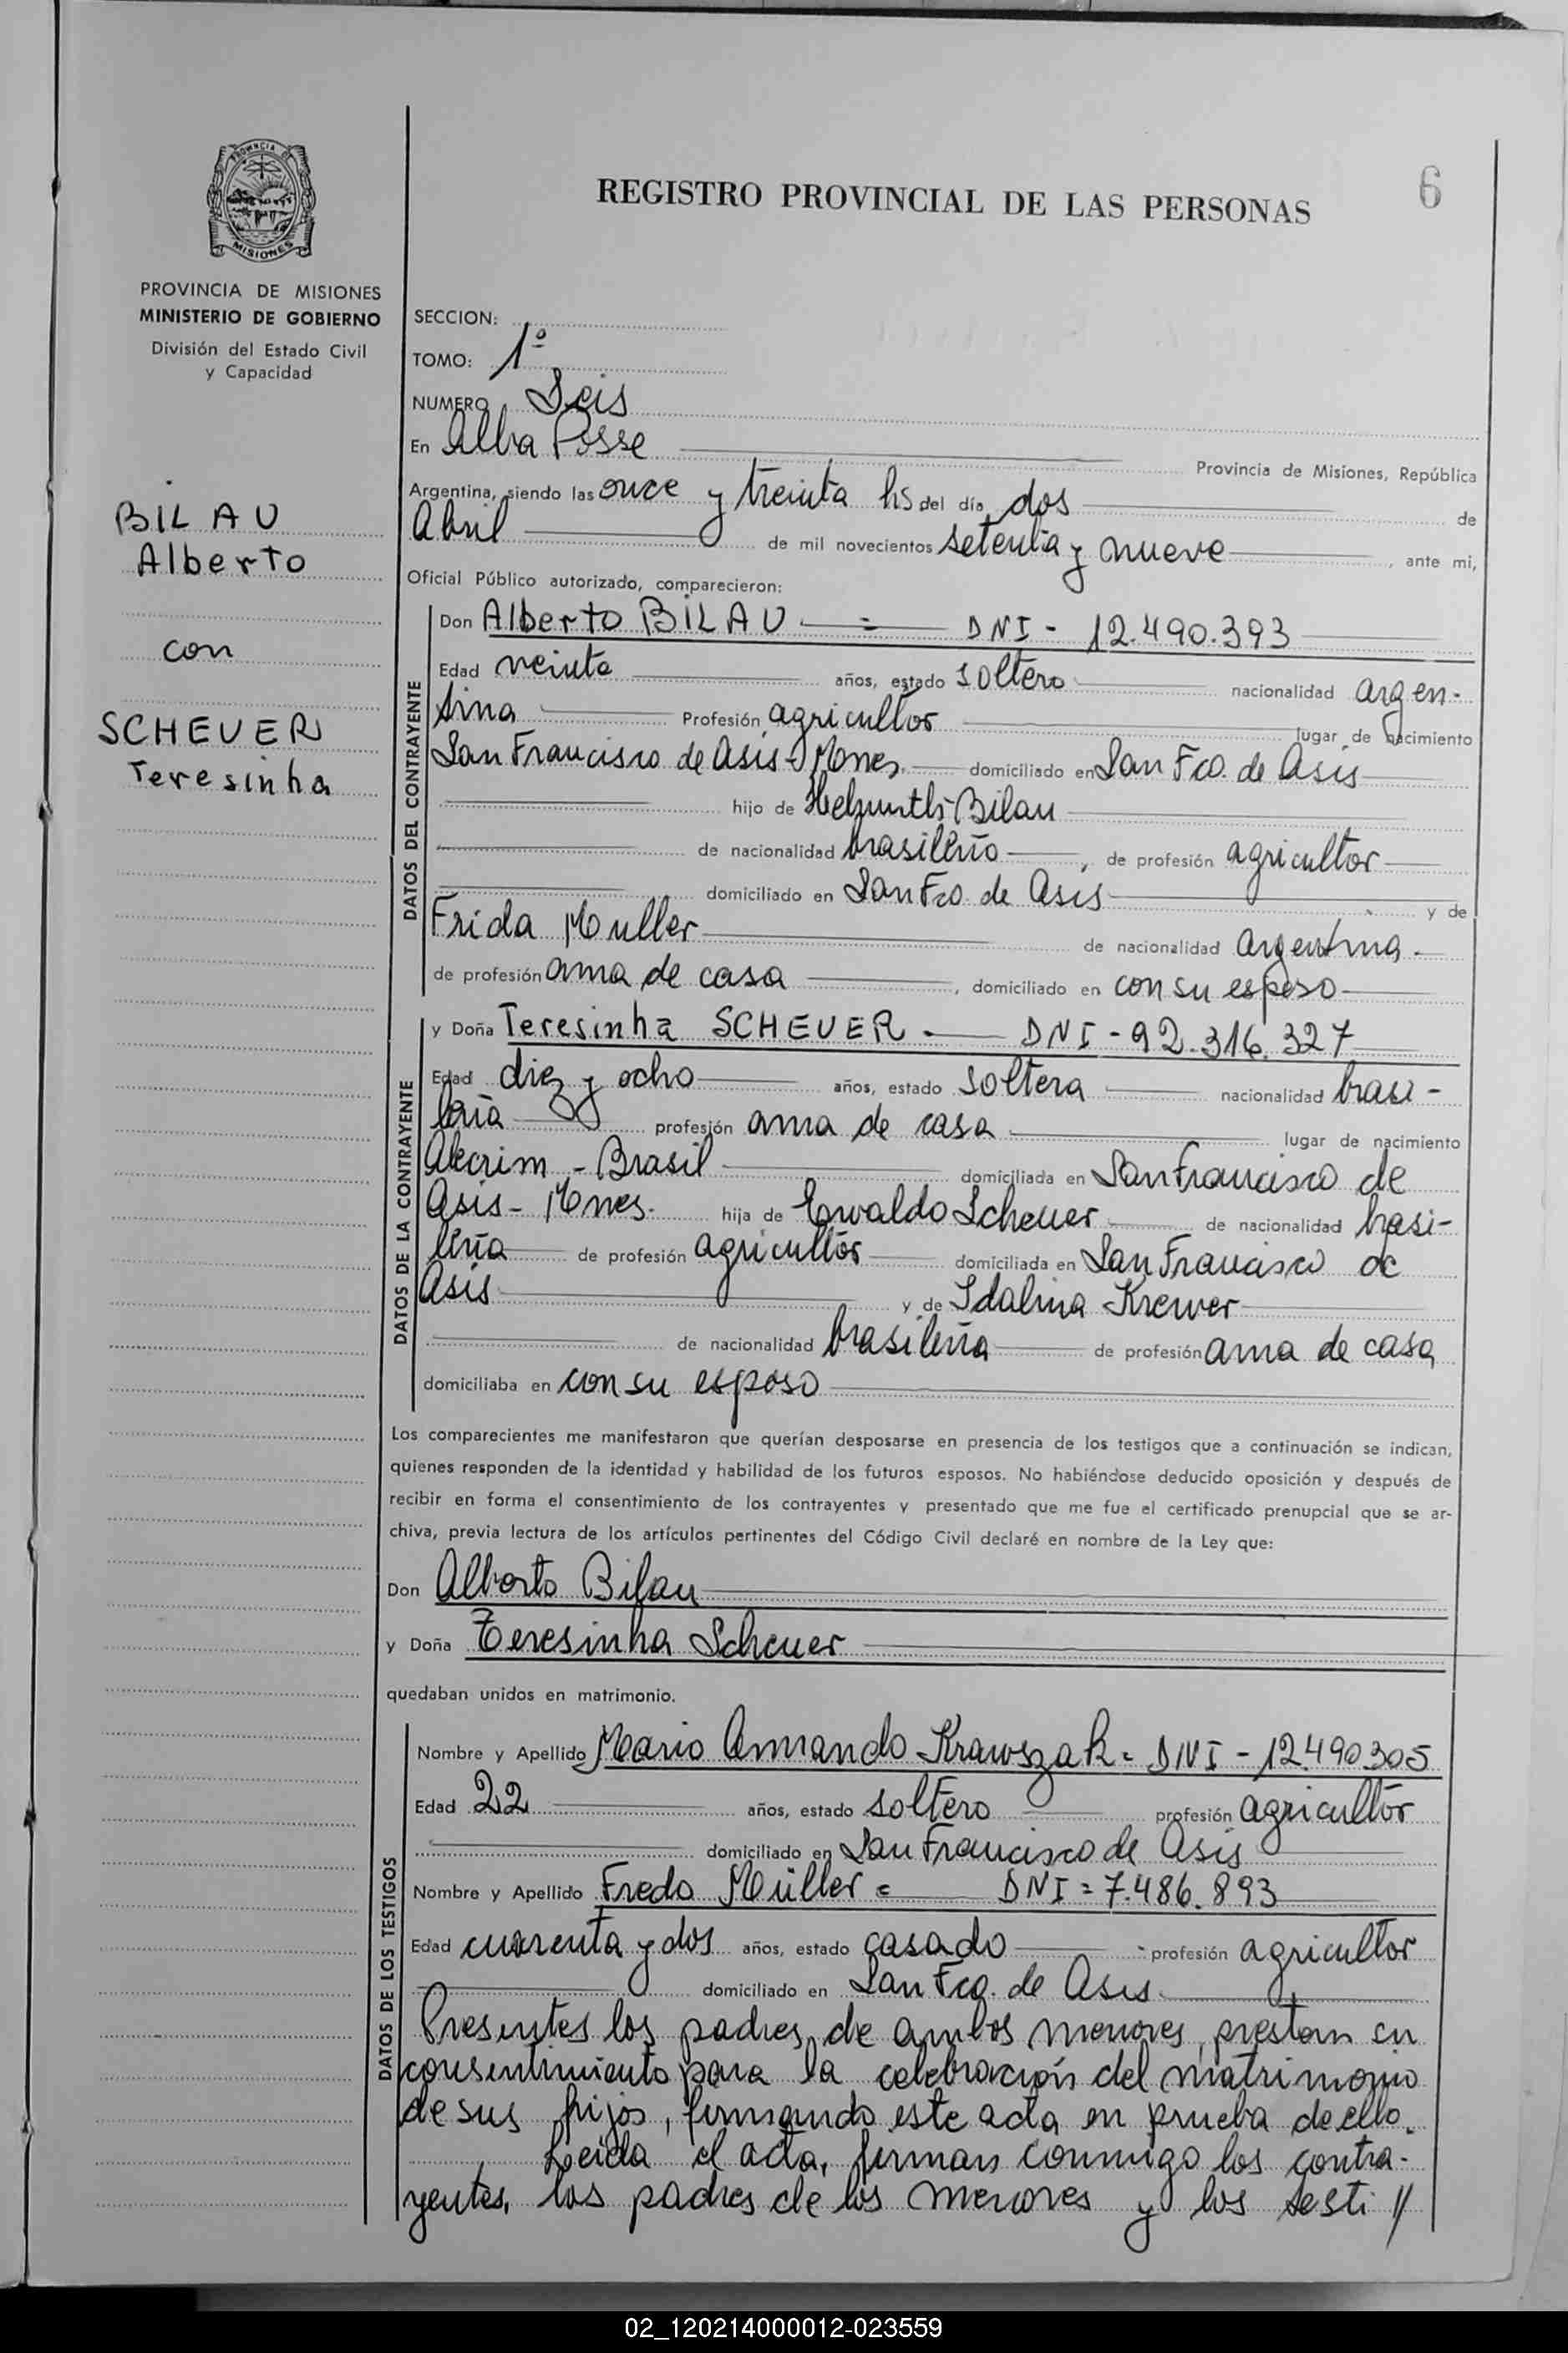 PROVINCIA DE
MISIONES
PROVINCIA DE MISIONES
MINISTERIO DE GOBIERNO
División del Estado Civil
y Capacidad
BILAU
Alberto
con
SCHEUER
Teresinha
REGISTRO PROVINCIAL DE LAS PERSONAS
6
SECCION:
TOMO: 1º
NUMERO Seis
En Alba Posse Provincia de Misiones, República
Argentina, siendo las once y treinta hs del día dos de
Abril de mil novecientos setenta y nueve, ante mi,
Oficial Público autorizado, comparecieron:
DATOS DEL CONTRAYENTE
Don Alberto BILAU = DNI - 12.490.393
Edad veinte años, estado soltero nacionalidad argen-
tina Profesión agricultor lugar de nacimiento
San Francisco de Asis - Mnes. domiciliado en San Fco. de Asis
hijo de Helmuth Bilau
de nacionalidad brasileño, de profesión agricultor
domiciliado en San Fco. de Asis y de
Frida Muller de nacionalidad argentina -
de profesión ama de casa, domiciliado en con su esposo
DATOS DE LA CONTRAYENTE
y Doña Teresinha SCHEUER - DNI - 92.316.327
Edad diez y ocho años, estado soltera nacionalidad brasi-
leña profesión ama de casa lugar de nacimiento
Alecrim - Brasil domiciliada en San Francisco de
Asis - Mnes. hija de Ewaldo Scheuer de nacionalidad brasi-
leña de profesión agricultor domiciliada en San Francisco de
Asis y de Idalina Krewer
de nacionalidad brasileña de profesión ama de casa
domiciliaba en con su esposo
Los comparecientes me manifestaron que querían desposarse en presencia de los testigos que a continuación se indican,
quienes responden de la identidad y habilidad de los futuros esposos. No habiéndose deducido oposición y después de
recibir en forma el consentimiento de los contrayentes y presentado que me fue el certificado prenupcial que se ar-
chiva, previa lectura de los artículos pertinentes del Código Civil declaré en nombre de la Ley que:
Don Alberto Bilau
y Doña Teresinha Scheuer
quedaban unidos en matrimonio.
DATOS DE LOS TESTIGOS
Nombre y Apellido Mario Armando Krawszak = DNI - 12.490.305
Edad 22 años, estado soltero profesión agricultor
domiciliado en San Francisco de Asis
Nombre y Apellido Fredo Müller = DNI = 7.486.893
Edad cuarenta y dos años, estado casado profesión agricultor
domiciliado en San Fco. de Asis.
Presentes los padres de ambos menores, prestan su
consentimiento para la celebración del matrimonio
de sus hijos, firmando este acta en prueba de ello.
Leída el acta, firman conmigo los contra-
yentes, los padres de los menores y los testi //
02_120214000012-023559